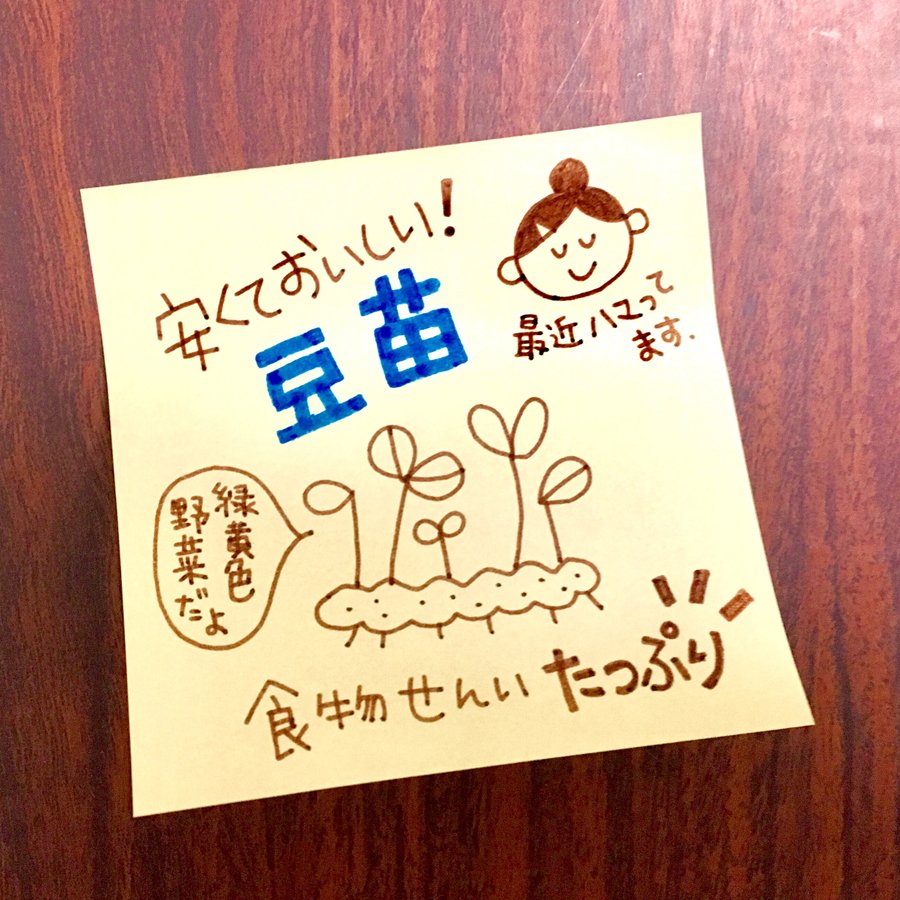 安くておいしい!
豆苗
最近ハマって
ます.
緑黄色
野菜だよ
食物せんい たっぷり